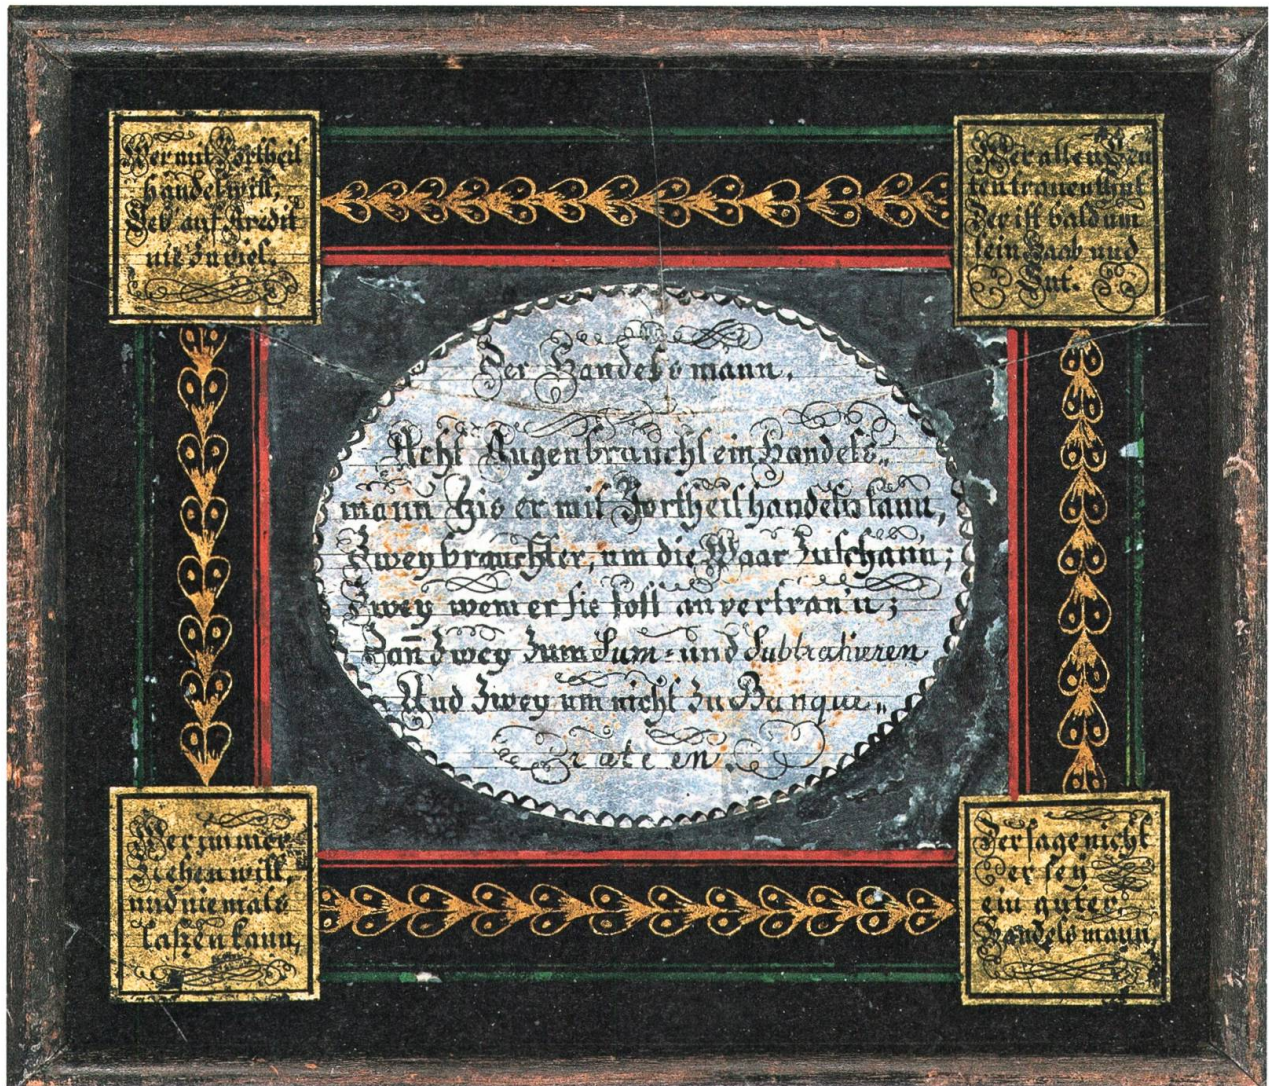 Wer mit Vortheil
handel will,
Geb auf Kredit
nie zu viel.
Wer allen Leu
ten trauen thut
Der ist bald um
sein Haab und
Gut.
Der Handelsmann,
Acht Augen braucht ein Handels„
mann Bis er mit Vortheil handeln kann,
Zwey braucht er, um die Waar zu schaun;
Zwey wem er sie soll anvertrau'n;
Dan̄ zwey zum Sum=und Subtrahieren
Und zwey um nicht zu Banque„
rotieren.
Wer immer
Ziehen will,
und niemals
laszen kann,
Der sage nicht
er sey
ein guter
Handelsmann,